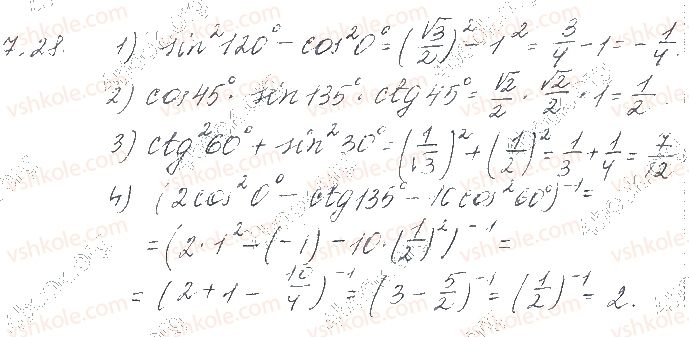 7.28. 1) sin²120° − cos²0° = (√3/2)² − 1² = 3/4 − 1 = −1/4.
2) cos45° · sin135° · ctg45° = √2/2 · √2/2 · 1 = 1/2.
3) ctg²60° + sin²30° = (1/√3)² + (1/2)² = 1/3 + 1/4 = 7/12
4) (2cos²0° − ctg135° − 10cos²60°)⁻¹ =
= (2 · 1² − (−1) − 10 · (1/2)²)⁻¹ =
= (2 + 1 − 10/4)⁻¹ = (3 − 5/2)⁻¹ = (1/2)⁻¹ = 2.